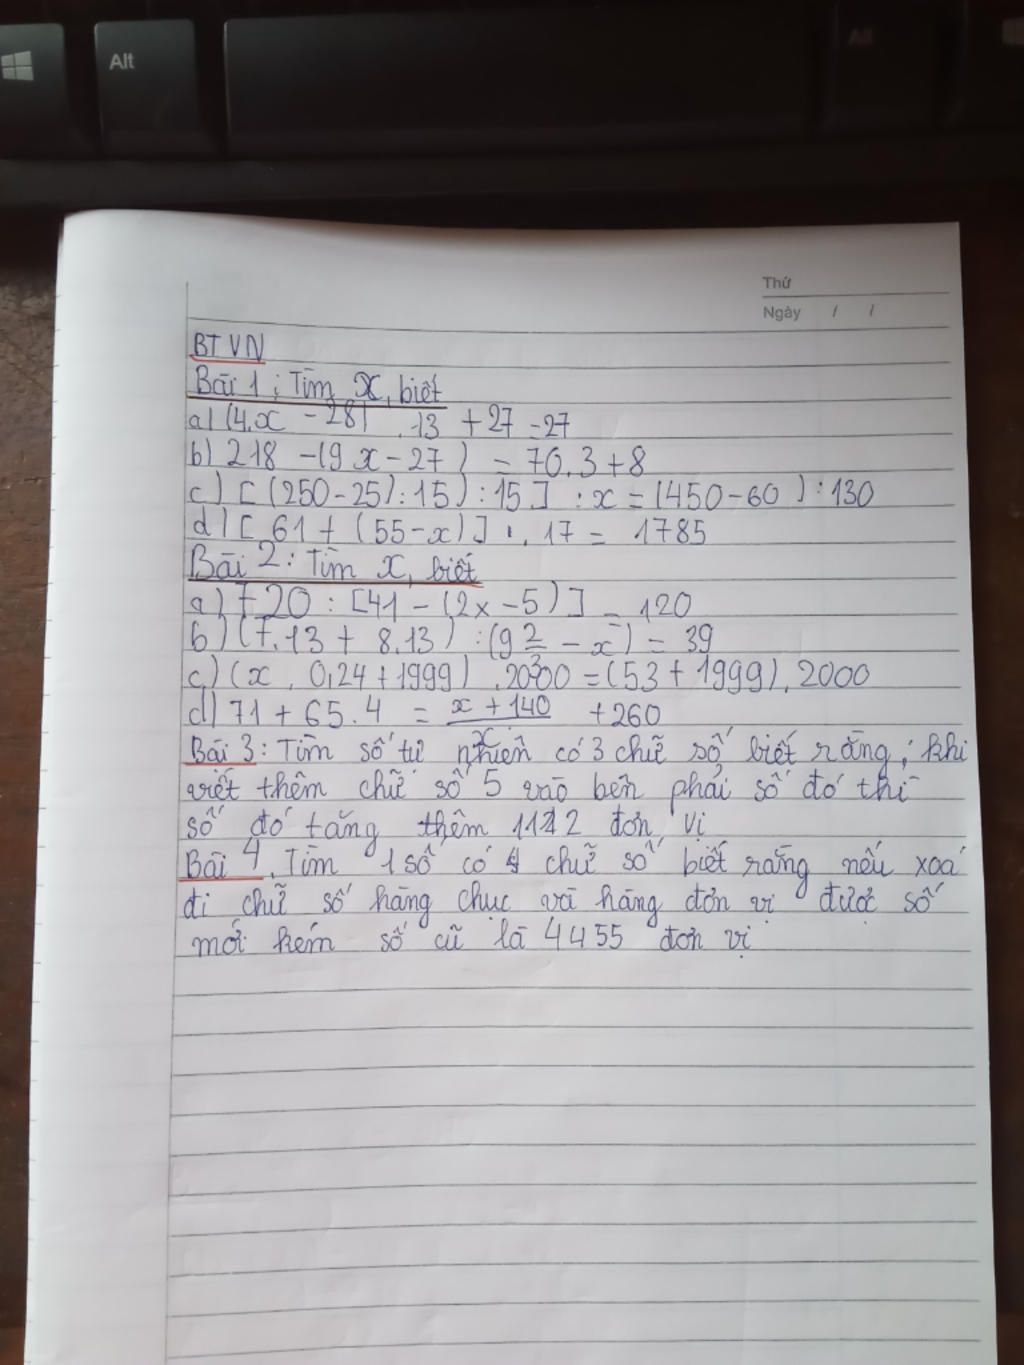 Alt
Alt
Thứ
Ngày / /
BTVN
Bài 1: Tìm x, biết
a) (4.x - 28) .13 + 27 = 27
b) 218 - (9x - 27) = 70.3 + 8
c) [ (250 - 25) : 15) : 15 ] : x = (450 - 60) : 130
d) [ 61 + (55 - x) ] . 17 = 1785
Bài 2: Tìm x, biết
a) 720 : [41 - (2x - 5)] = 120
b) (7.13 + 8.13) : (9 2/3 - x) = 39
c) (x . 0,24 + 1999) . 2000 = (53 + 1999) . 2000
d) 71 + 65.4 = (x + 140)/x + 260
Bài 3: Tìm số tự nhiên có 3 chữ số biết rằng, khi
viết thêm chữ số 5 vào bên phải số đó thì
số đó tăng thêm 1112 đơn vị
Bài 4. Tìm 1 số có 4 chữ số biết rằng nếu xoá
đi chữ số hàng chục và hàng đơn vị được số
mới kém số cũ là 4455 đơn vị